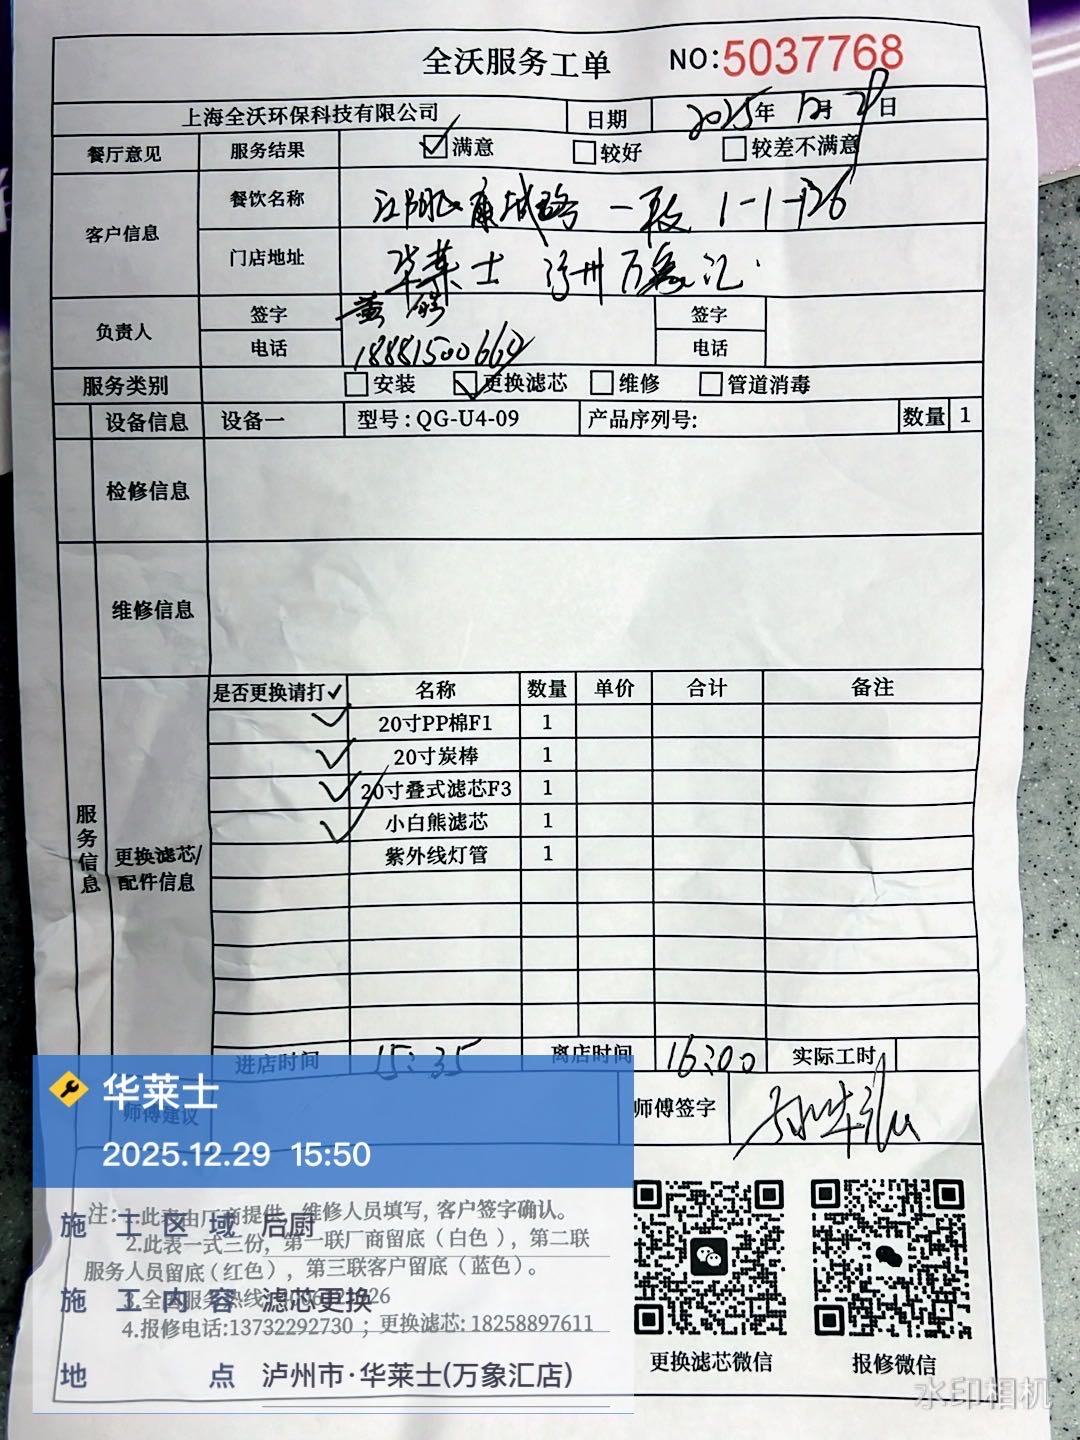 全沃服务工单 NO:5037768
上海全沃环保科技有限公司 日期 2025年12月29日
餐厅意见 服务结果 满意 较好 较差不满意
客户信息 餐饮名称 1-1-126
门店地址 华莱士 泸州万象汇
负责人 签字 黄 签字
电话 电话
服务类别 安装 更换滤芯 维修 管道消毒
设备信息 设备一 型号:QG-U4-09 产品序列号: 数量 1
检修信息
维修信息
服务信息
更换滤芯/配件信息
是否更换请打✓ 名称 数量 单价 合计 备注
✓ 20寸PP棉F1 1
✓ 20寸炭棒 1
✓ 20寸叠式滤芯F3 1
✓ 小白熊滤芯 1
紫外线灯管 1
进店时间 15:35 离店时间 16:00 实际工时
师傅建议 师傅签字
华莱士
2025.12.29 15:50
注:1.此表由厂商提供，维修人员填写，客户签字确认。
施工区域 后厨
2.此表一式三份，第一联厂商留底（白色），第二联
服务人员留底（红色），第三联客户留底（蓝色）。
3.全国服务热线
施工内容 滤芯更换
4.报修电话:13732292730；更换滤芯:18258897611
地点 泸州市·华莱士(万象汇店)
更换滤芯微信 报修微信
水印相机